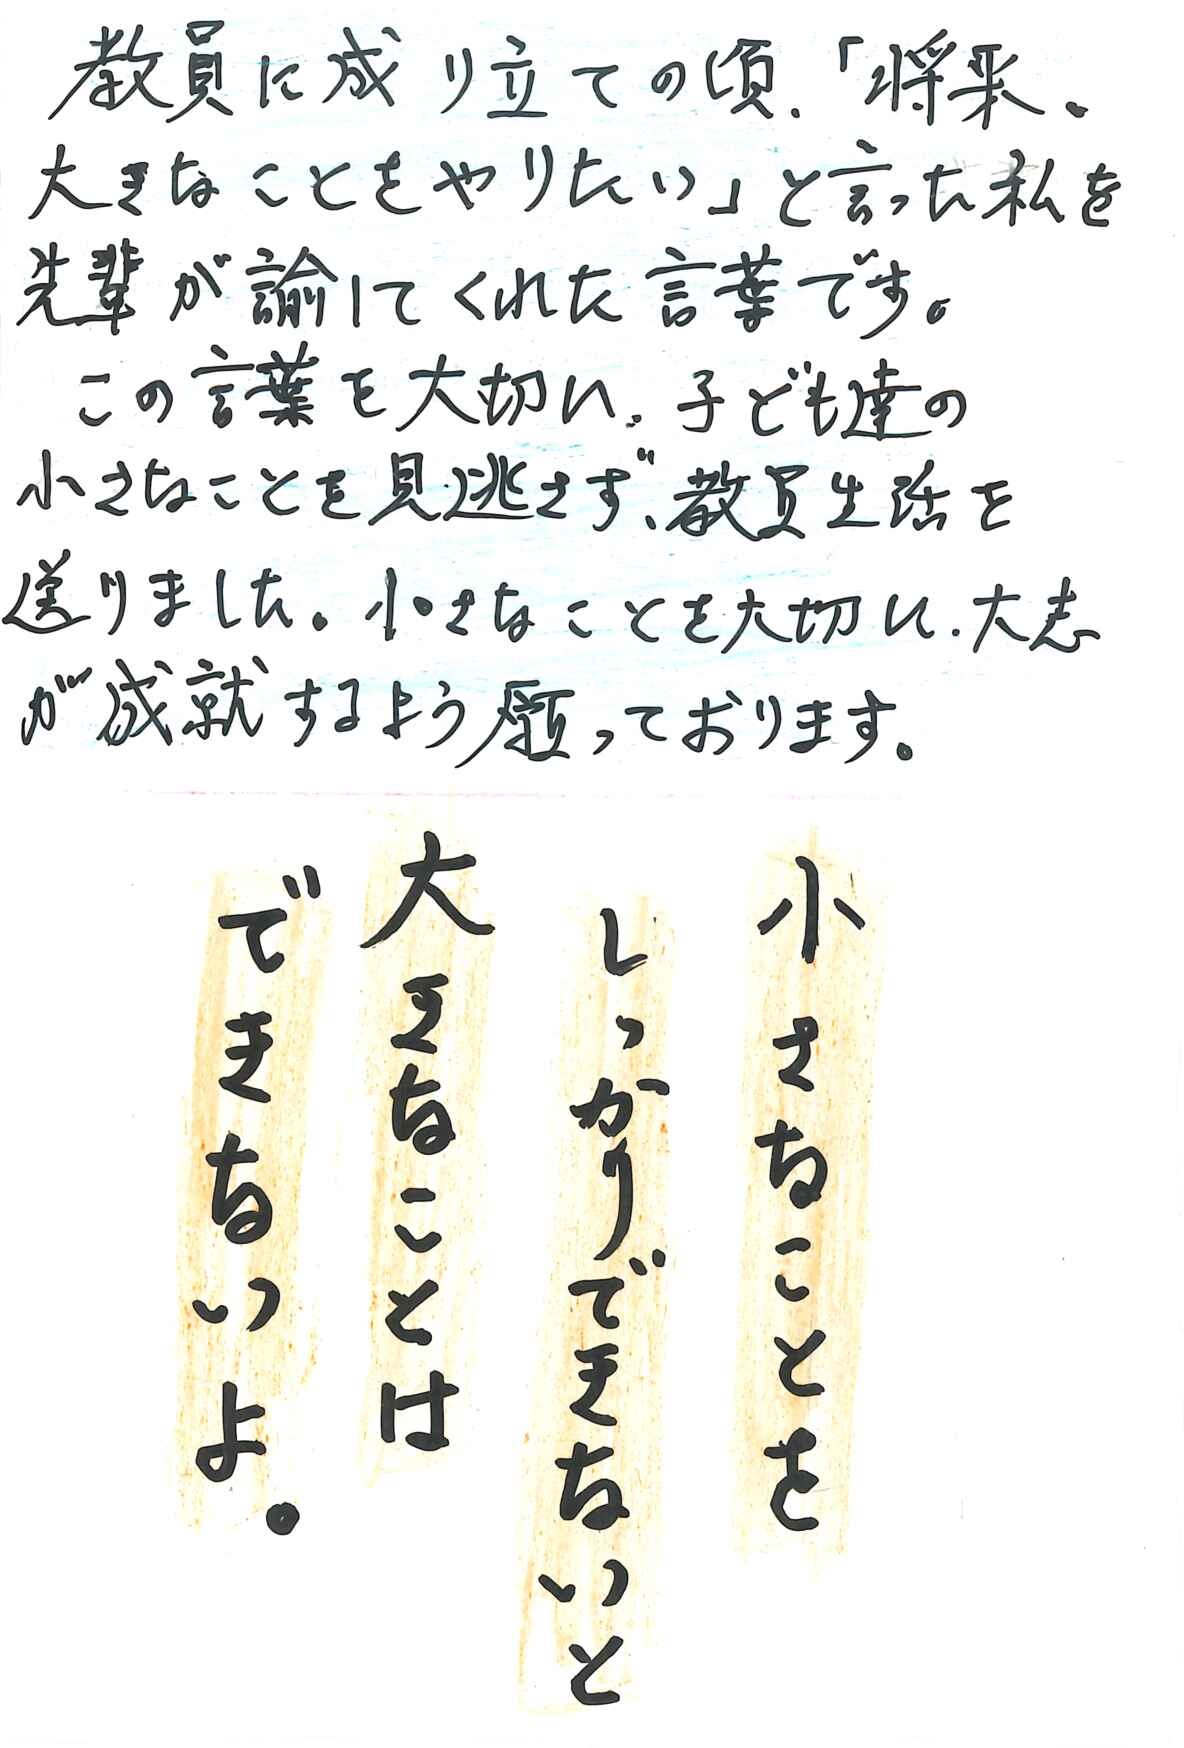 教員に成り立ての頃、「将来、
大きなことをやりたい」と言った私を
先輩が諭してくれた言葉です。
この言葉を大切に、子ども達の
小さなことを見逃さず、教員生活を
送りました。小さなことを大切に、大志
が成就するよう願っております。
小さなことを
しっかりできないと
大きなことは
できないよ。